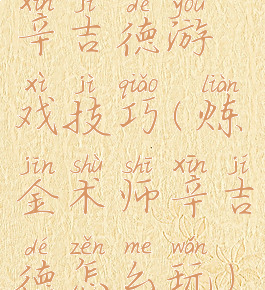 xīn jí dé yóu
辛吉德游
xì jì qiǎo liàn
戏技巧(炼
jīn shù shī xīn jí
金术师辛吉
dé zěn me wán
德怎么玩)